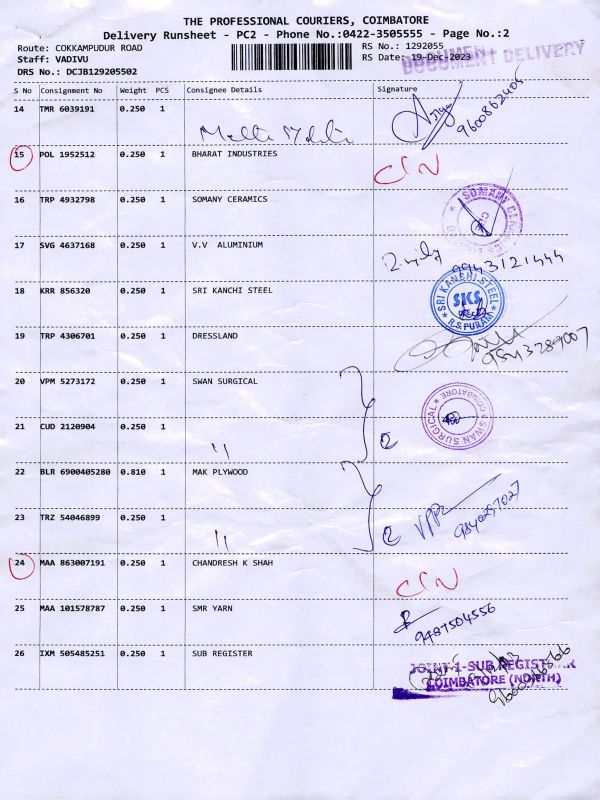 THE PROFESSIONAL COURIERS, COIMBATORE
Delivery Runsheet - PC2 - Phone No.:0422-3505555 - Page No.:2
Route: COKKAMPUDUR ROAD
RS No.: 1292055
Staff: VADIVU
RS Date: 19-Dec-2023
DOCUMENT DELIVERY
DRS No.: DCJB129205502
S No Consignment No Weight PCS Consignee Details Signature
14 TMR 6039191 0.250 1
9600862405
15 POL 1952512 0.250 1 BHARAT INDUSTRIES
C/N
16 TRP 4932798 0.250 1 SOMANY CERAMICS
SOMANY CERAMICS
17 SVG 4637168 0.250 1 V.V ALUMINIUM
9943121444
18 KRR 856320 0.250 1 SRI KANCHI STEEL
SRI KANCHI STEEL
SKS
R.S.PURAM
19 TRP 4306701 0.250 1 DRESSLAND
9843289007
20 VPM 5273172 0.250 1 SWAN SURGICAL
SWAN SURGICAL
COIMBATORE
21 CUD 2120904 0.250 1 "
2
22 BLR 6900405280 0.810 1 MAK PLYWOOD
23 TRZ 54046899 0.250 1 "
2
9840297027
24 MAA 863007191 0.250 1 CHANDRESH K SHAH
C/N
25 MAA 101578787 0.250 1 SMR YARN
9487504556
26 IXM 505485251 0.250 1 SUB REGISTER
JOINT-1-SUB REGISTRAR
COIMBATORE (NORTH)